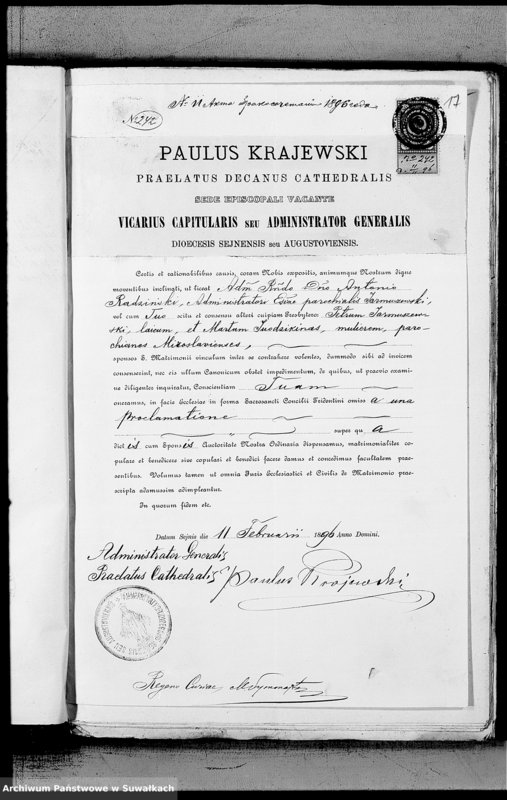 № 11 Акта бракосочетанія 1896 года
17
№ 242
№ 242
PAULUS KRAJEWSKI
PRAELATUS DECANUS CATHEDRALIS
SEDE EPISCOPALI VACANTE
VICARIUS CAPITULARIS SEU ADMINISTRATOR GENERALIS
DIOECESIS SEJNENSIS seu AUGUSTOVIENSIS.
Certis et rationabilibus causis, coram Nobis expositis, animumque Nostrum digne
moventibus inclinati, ut liceat Adm Rndo Dno Antonio
Radziński, Administratori Ecclae parochialis Jarmuzewski,
vel cum Tuo scitu et consensu alteri cuipiam Presbytero: Petrum Jarmuszew-
ski, laicum, et Martam Juodzikinas, mulierem, paro-
chianos Mirosłavienses,
sponsos S. Matrimonii vinculum inter se contrahere volentes, dummodo sibi ad invicem
consenserint, nec eis ullum Canonicum obstet impedimentum, de quibus, ut praevio exami-
ne diligenter inquiratur, Conscientiam Tuam
oneramus, in facie Ecclesiae in forma Sacrosancti Concilii Tridentini omiss a una
proclamatione
super qu a
dict is cum Spons is Auctoritate Nostra Ordinaria dispensamus, matrimonialiter co-
pulare et benedicere sive copulari et benedici facere damus et concedimus facultatem prae-
sentibus. Volumus tamen ut omnia Juris Ecclesiastici et Civilis de Matrimonio prae-
scripta adamussim adimpleantur.
In quorum fidem etc.
Datum Sejnis die 11 Februarii 1896 Anno Domini.
Administrator Generalis
Praelatus Cathedralis Paulus Krajewski
Regens Curiae
Archiwum Państwowe w Suwałkach